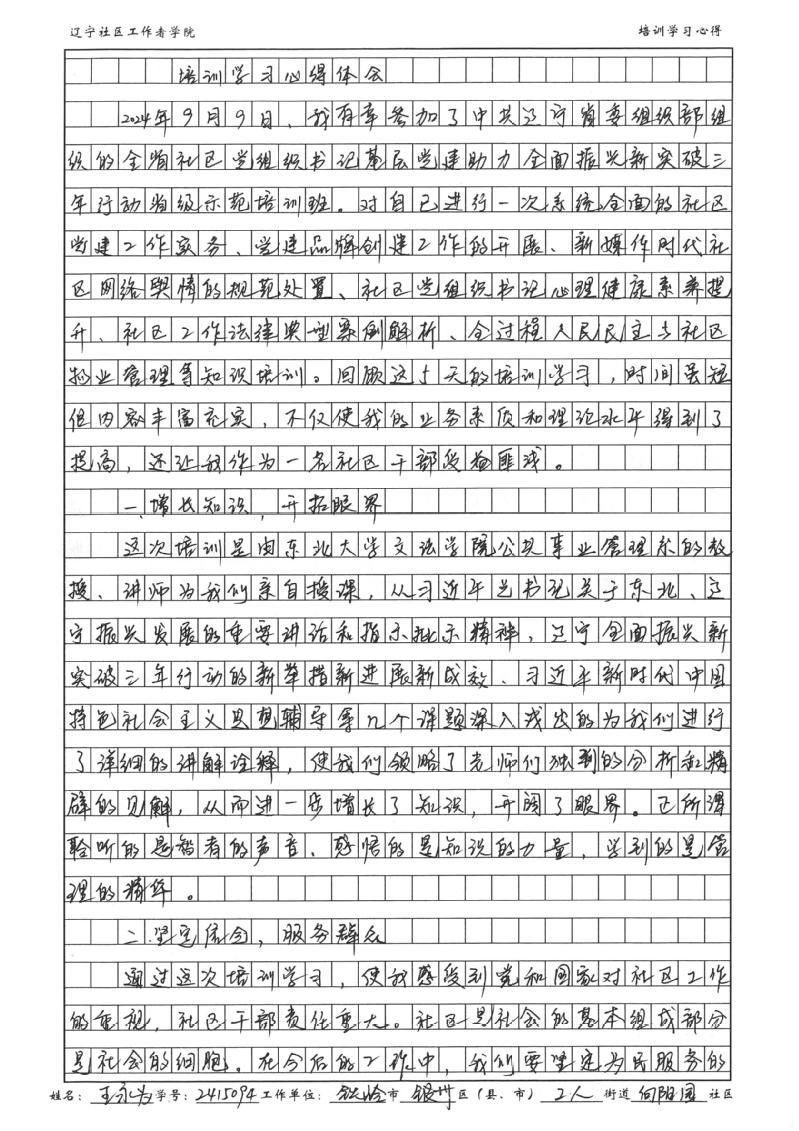 辽宁社区工作者学院 培训学习心得
培训学习心得体会
2024年9月9日、我有幸参加了中共辽宁省委组织部组
织的全省社区党组织书记基层党建助力全面振兴新突破三
年行动省级示范培训班。对自己进行一次系统全面的社区
党建工作实务、党建品牌创建工作的开展、新媒作时代社
区网络舆情的规范处置、社区党组织书记心理健康素养提
升、社区工作法律典型案例解析、全过程人民民主与社区
物业管理等知识培训。回顾这5天的培训学习，时间虽短
但内容丰富充实，不仅使我的业务素质和理论水平得到了
提高，还让我作为一名社区干部受益匪浅。
一、增长知识，开拓眼界
这次培训是由东北大学文法学院公共事业管理系的教
授、讲师为我们亲自授课，从习近平总书记关于东北、辽
宁振兴发展的重要讲话和指示批示精神，辽宁全面振兴新
突破三年行动的新举措新进展新成效、习近平新时代中国
特色社会主义思想辅导等几个课题深入浅出的为我们进行
了详细的讲解诠释，使我们领略了老师们独到的分析和精
辟的见解，从而进一步增长了知识，开阔了眼界。正所谓
聆听的是智者的声音、感悟的是知识的力量，学到的是管
理的精华。
二坚定信念，服务群众
通过这次培训学习，使我感受到党和国家对社区工作
的重视，社区干部责任重大。社区是社会的基本组成部分
是社会的细胞。在今后的工作中，我们要坚定为民服务的
姓名：王永 学号：2415094 工作单位：铁岭市 银州区（县、市） 工人 街道 向阳园 社区